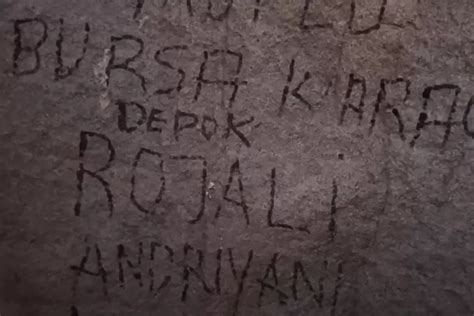 BURSA
DEPOK
ROJALI
ANDRIYANI